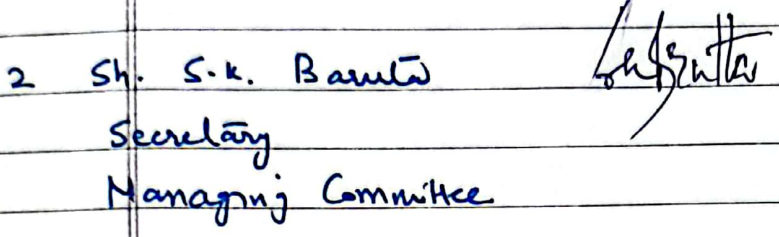 2 Sh. S.K. Barutta
Secretary
Managing Committee